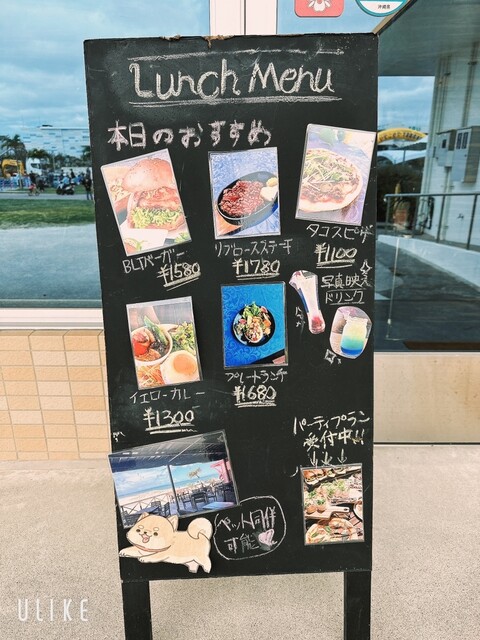 Lunch Menu
本日のおすすめ
BLTバーガー
¥1580
リブロースステーキ
¥1780
タコスピザ
¥1100
写真映え
ドリンク
イエローカレー
¥1300
プレートランチ
¥1680
パーティプラン
受付中!!
ペット同伴
可能
ULIKE